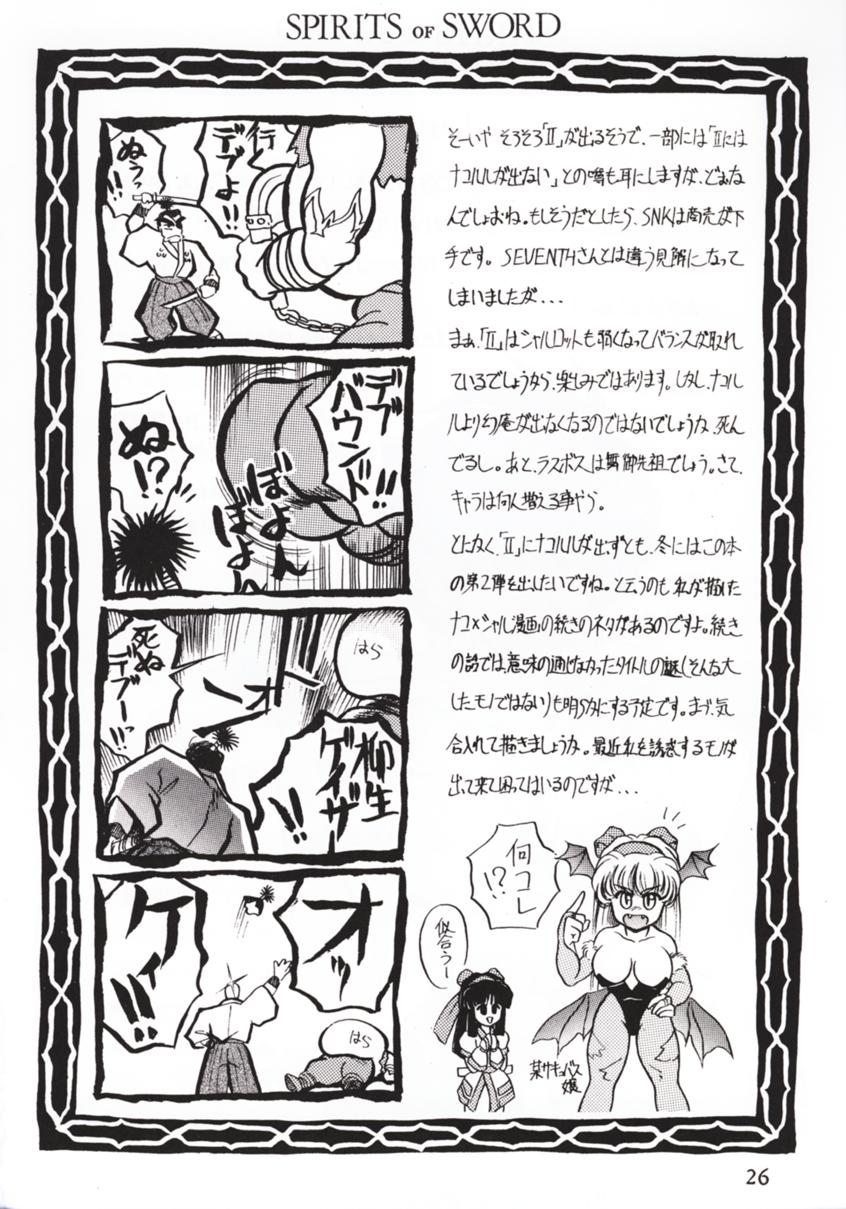 SPIRITS OF SWORD
行くデブよ!!
ぬうっ!!
デブバウンド!!
ぼよんぼよん
ぬ!?
はら
死ぬデブー!!
柳生ゲイザー!!
オッ
ゲイ!!
はら
そーいや そろそろ「Ⅱ」が出るそうで、一部には「Ⅱには
ナコルルが出ない」との噂も耳にしますが、どぉな
んでしょおね。もしそうだとしたら、SNKは商売が下
手です。SEVENTHさんとは違う見解になって
しまいましたが...
まぁ、「Ⅱ」はシャルロットも弱くなってバランスが取れ
ているでしょうから、楽しみではあります。しかし、ナコル
ルより幻庵が出なくなるのではないでしょうか、死ん
でるし。あと、ラスボスは舞御先祖でしょう。さて、
キャラは何人増える事やら。
とにかく、「Ⅱ」にナコルルが出ずとも、冬にはこの本
の第2弾を出したいですね。と云うのも私が描いた
ナコ×シャル漫画の続きのネタがあるのですよ。続き
の話では、意味の通じなかったタイトルの謎(そんな大
したモノではない)も明らかにする予定です。まぁ、気
合入れて描きましょうか。最近私を誘惑するモノが
出て来て困ってはいるのですが...
何コレ!?
似合うー
某サキュバス嬢
26